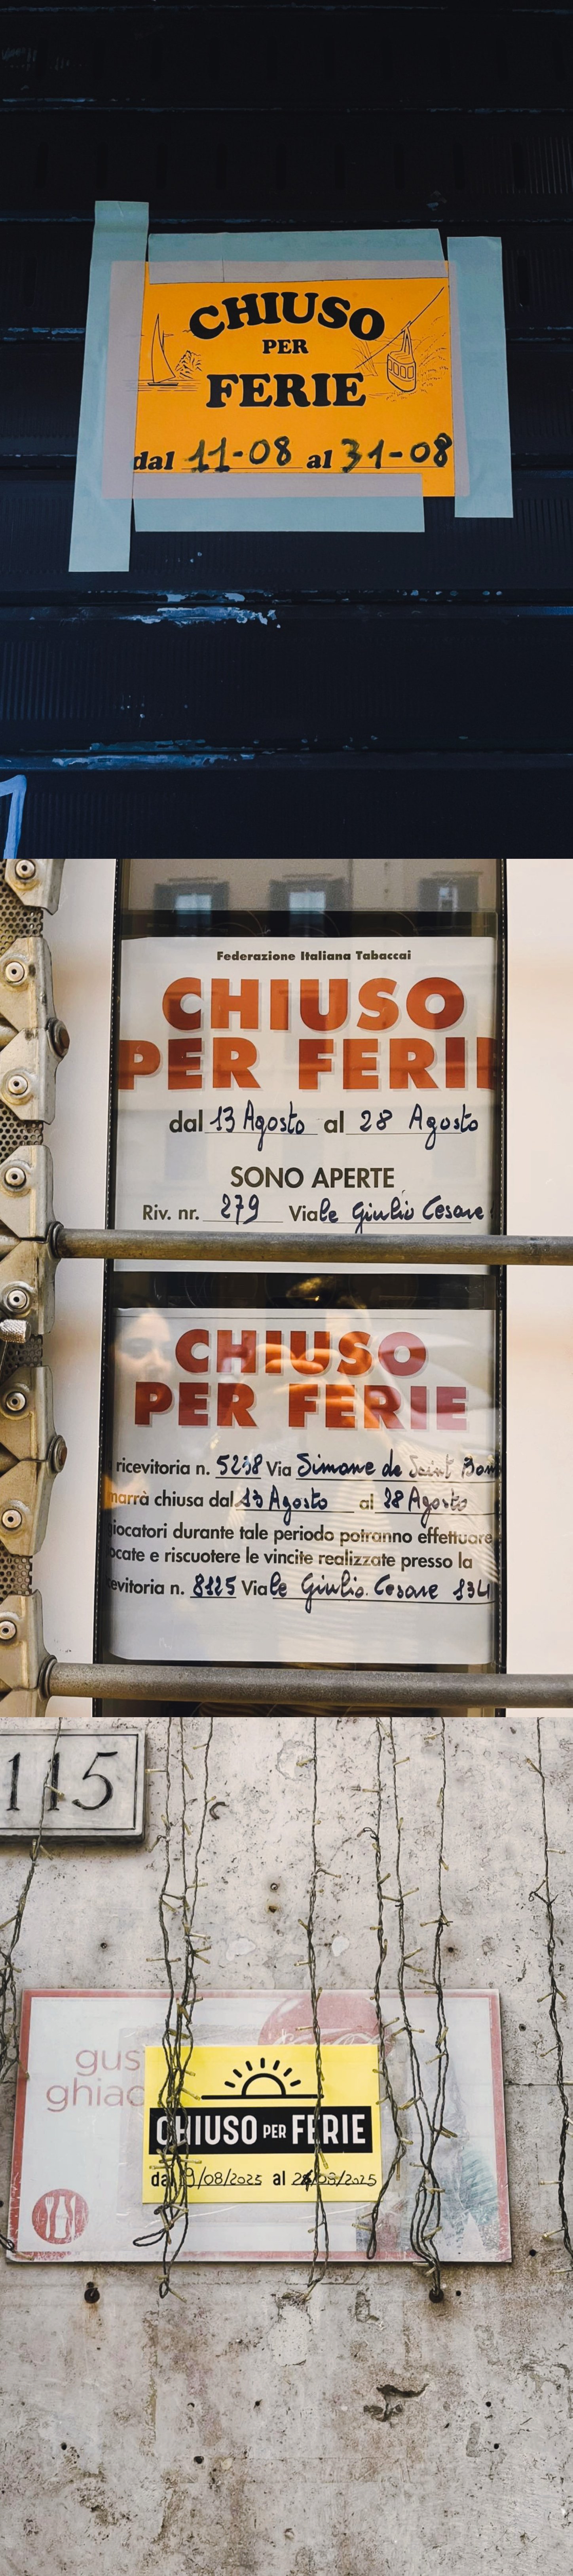 CHIUSO
PER
FERIE
dal 11-08 al 31-08
Federazione Italiana Tabaccai
CHIUSO
PER FERIE
dal 13 Agosto al 28 Agosto
SONO APERTE
Riv. nr. 279 Viale Giulio Cesare
CHIUSO
PER FERIE
ricevitoria n. 5238 Via Simone de Saint Bon
marrà chiusa dal 13 Agosto al 28 Agosto
giocatori durante tale periodo potranno effettuare
ocate e riscuotere le vincite realizzate presso la
cevitoria n. 8125 Viale Giulio Cesare 134
115
gus
ghiac
CHIUSO PER FERIE
dal 9/08/2025 al /2025